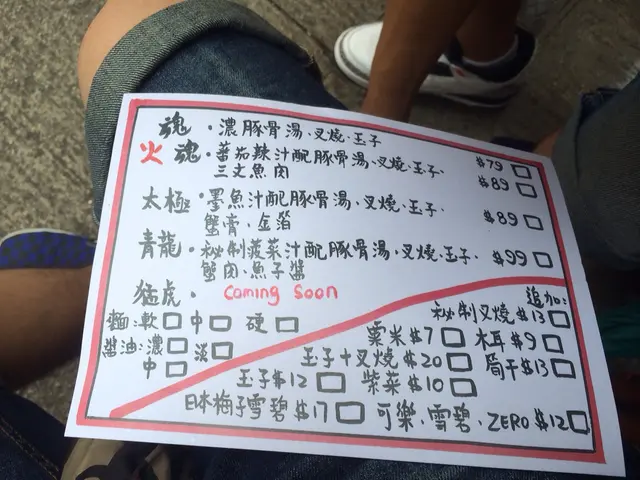 魂・濃豚骨湯、叉燒、玉子 $79
火魂・蕃茄辣汁配豚骨湯、叉燒、玉子、
三文魚肉 $89
太極・墨魚汁配豚骨湯、叉燒、玉子、
蟹膏、金箔 $89
青龍・秘制菠菜汁配豚骨湯、叉燒、玉子、
蟹肉、魚子醬 $99
猛虎・ Coming Soon
麵:軟 中 硬
醬油:濃 淡
中
追加:
秘制叉燒$13
粟米$7 木耳$9
玉子+叉燒$20 筍干$13
玉子$12 紫菜$10
日本梅子雪碧$17 可樂、雪碧、ZERO $12